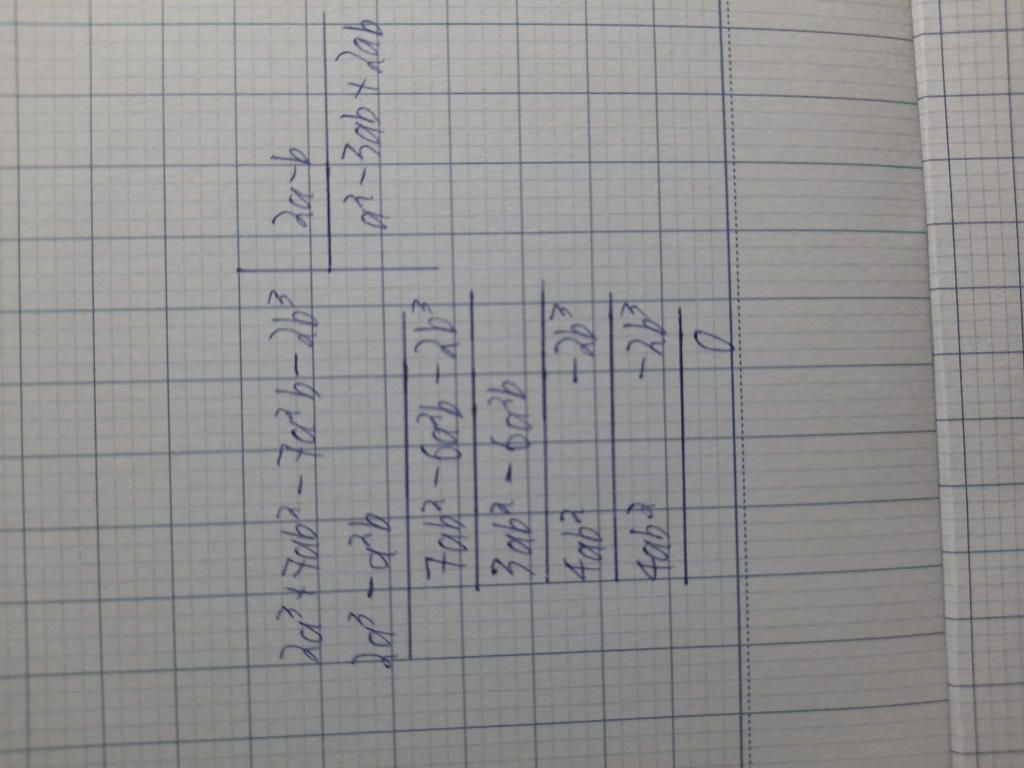 2a³ + 7ab² - 7a²b - 2b³ | 2a - b
2a³ - a²b | a² - 3ab + 2ab
7ab² - 6a²b - 2b³
3ab² - 6a²b
4ab² - 2b³
4ab² - 2b³
0